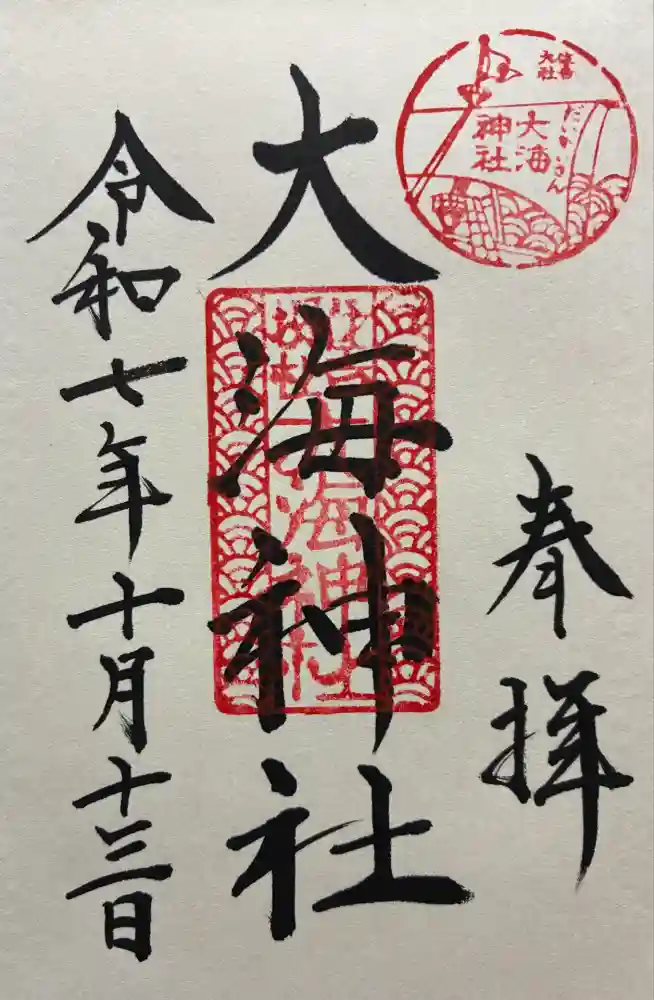 奉拝
住吉
大社
だいかいさん
大海
神社
大海神社
令和七年十月十三日